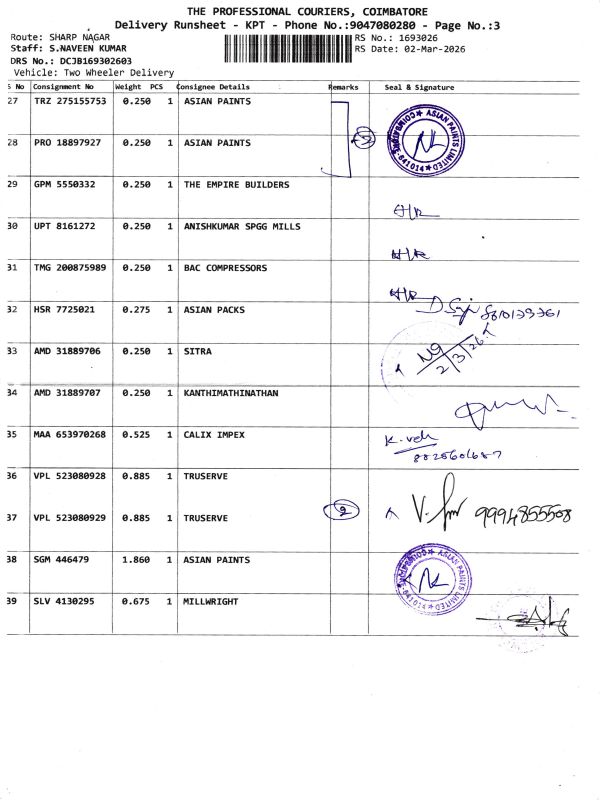 THE PROFESSIONAL COURIERS, COIMBATORE
Delivery Runsheet - KPT - Phone No.:9047080280 - Page No.:3
Route: SHARP NAGAR RS No.: 1693026
Staff: S.NAVEEN KUMAR RS Date: 02-Mar-2026
DRS No.: DCJB169302603
Vehicle: Two Wheeler Delivery
S No Consignment No Weight PCS Consignee Details Remarks Seal & Signature
27 TRZ 275155753 0.250 1 ASIAN PAINTS
ASIAN PAINTS LIMITED COIMBATORE 641014
28 PRO 18897927 0.250 1 ASIAN PAINTS
29 GPM 5550332 0.250 1 THE EMPIRE BUILDERS
H/R
30 UPT 8161272 0.250 1 ANISHKUMAR SPGG MILLS
H/R
31 TMG 200875989 0.250 1 BAC COMPRESSORS
H/R
32 HSR 7725021 0.275 1 ASIAN PACKS
33 AMD 31889706 0.250 1 SITRA
2/3/26
34 AMD 31889707 0.250 1 KANTHIMATHINATHAN
35 MAA 653970268 0.525 1 CALIX IMPEX
36 VPL 523080928 0.885 1 TRUSERVE
37 VPL 523080929 0.885 1 TRUSERVE 2 9994855508
38 SGM 446479 1.860 1 ASIAN PAINTS
ASIAN PAINTS LIMITED COIMBATORE 641014
39 SLV 4130295 0.675 1 MILLWRIGHT